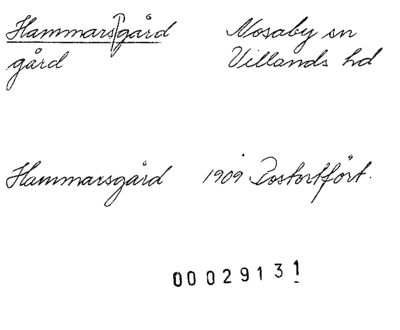 Hammarsgård Mosaby sn
gård Villands hd
Hammarsgård 1909 Postortfört.
00029131